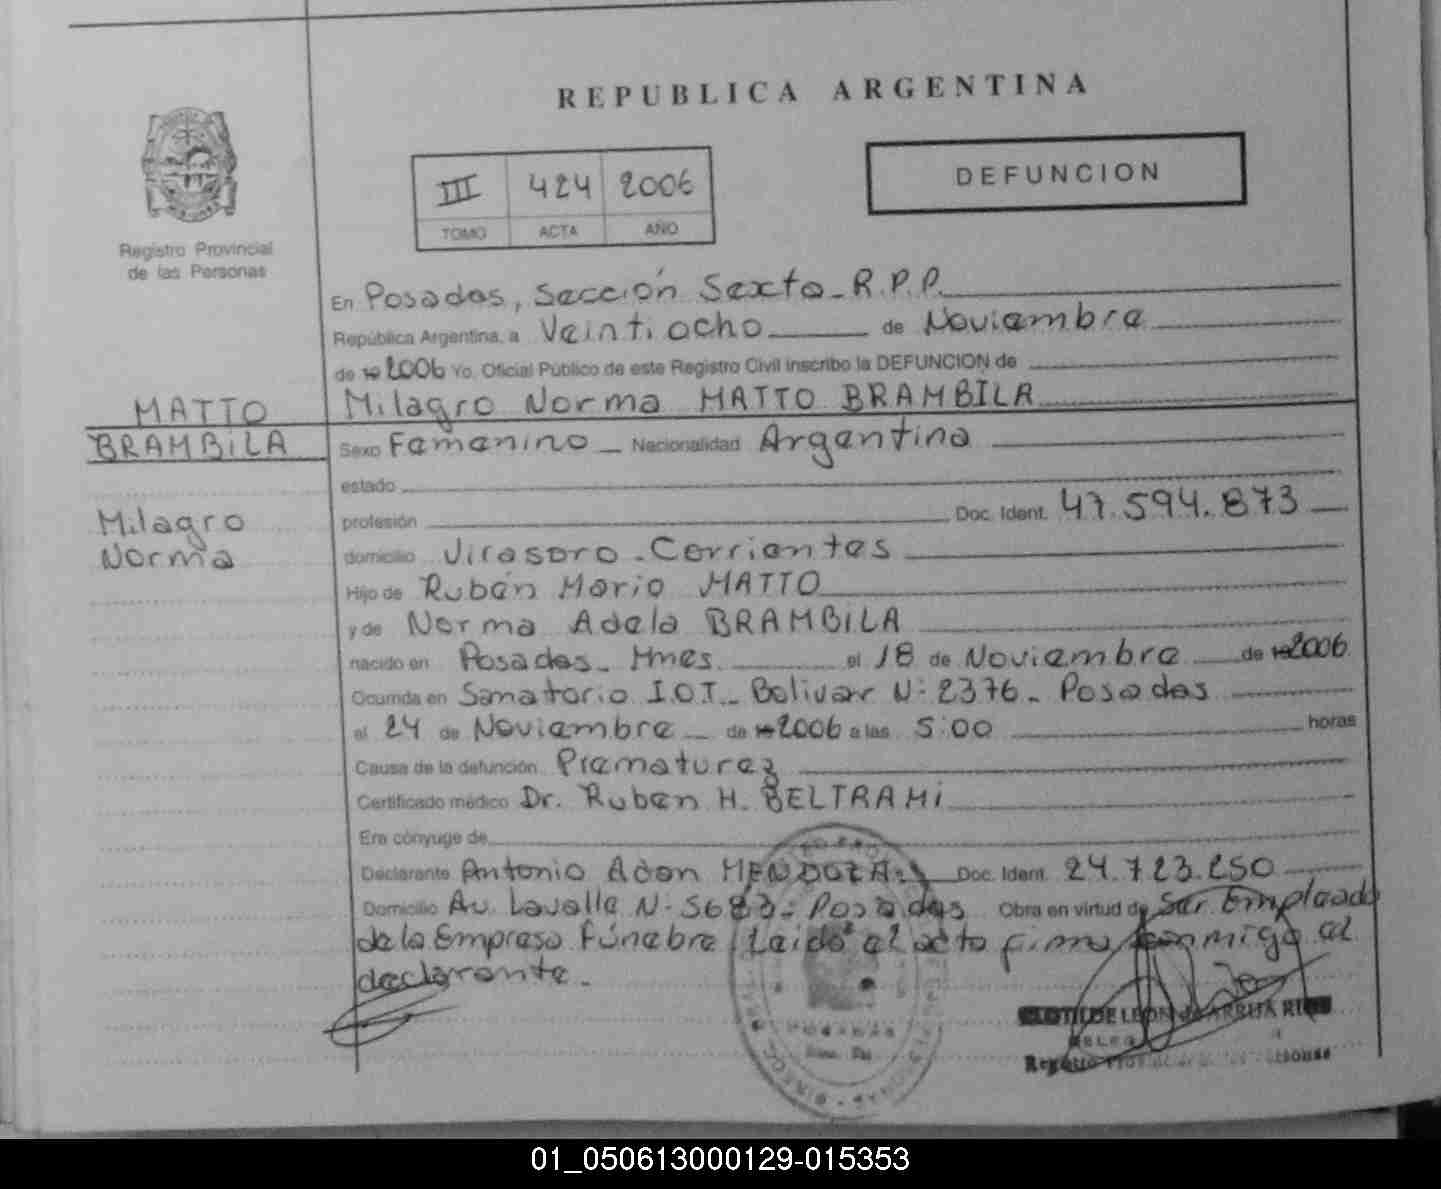 REPUBLICA ARGENTINA
DEFUNCION
III 424 2006
TOMO ACTA AÑO
Registro Provincial
de las Personas
En Posadas, Sección Sexta - R.P.P.
República Argentina, a Veintiocho de Noviembre
de 19 2006 Yo, Oficial Público de este Registro Civil inscribo la DEFUNCION de
Milagro Norma MATTO BRAMBILA
MATTO
BRAMBILA
Milagro
Norma
Sexo Femenino Nacionalidad Argentina
estado
profesión Doc. Ident. 47.594.873
domicilio Virasoro - Corrientes
Hijo de Rubén Mario MATTO
y de Norma Adela BRAMBILA
nacido en Posadas - Mnes el 18 de Noviembre de 19 2006
Ocurrida en Sanatorio I.O.T. - Bolivar N: 2376 - Posadas
el 24 de Noviembre de 19 2006 a las 5:00 horas
Causa de la defunción Prematurez
Certificado médico Dr. Ruben H. BELTRAMI
Era cónyuge de
Declarante Antonio Adan MENDOZA Doc. Ident. 24.723.250
Domicilio Av. Lavalle N: 5683 - Posadas Obra en virtud de Ser Empleado
de la Empresa Fúnebre Leido el acto firma conmigo el
declarante.
POSADAS
CLOTILDE LEON
Registro
01_050613000129-015353